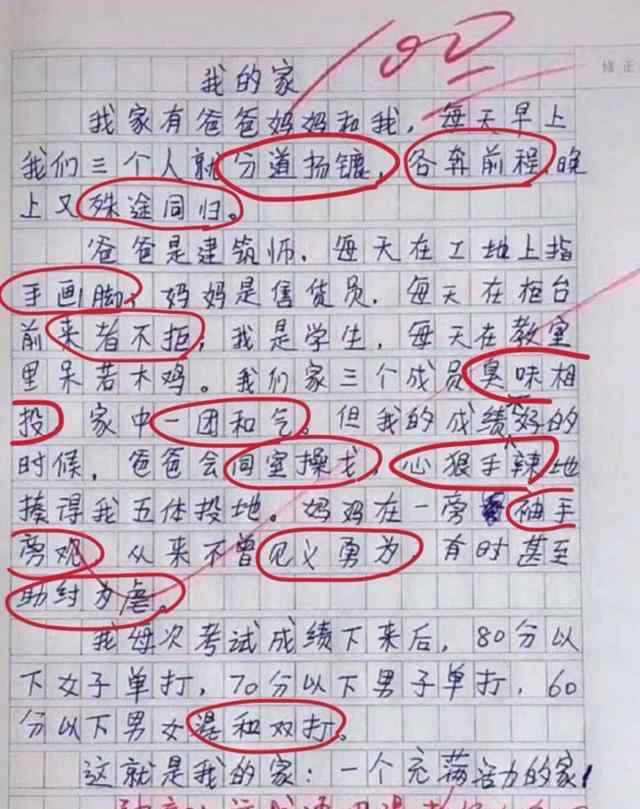 100
修正
我的家
我家有爸爸妈妈和我，每天早上
我们三个人就分道扬镳，各奔前程，晚
上又殊途同归。
爸爸是建筑师，每天在工地上指
手画脚；妈妈是售货员，每天在柜台
前来者不拒；我是学生，每天在教室
里呆若木鸡。我们家三个成员臭味相
投，家中一团和气。但我的成绩不好的
时候，爸爸会同室操戈，心狠手辣地
揍得我五体投地。妈妈在一旁袖手
旁观，从来不曾见义勇为，有时甚至
助纣为虐。
我每次考试成绩下来后，80分以
下女子单打，70分以下男子单打，60
分以下男女混和双打。
这就是我的家：一个充满活力的家！